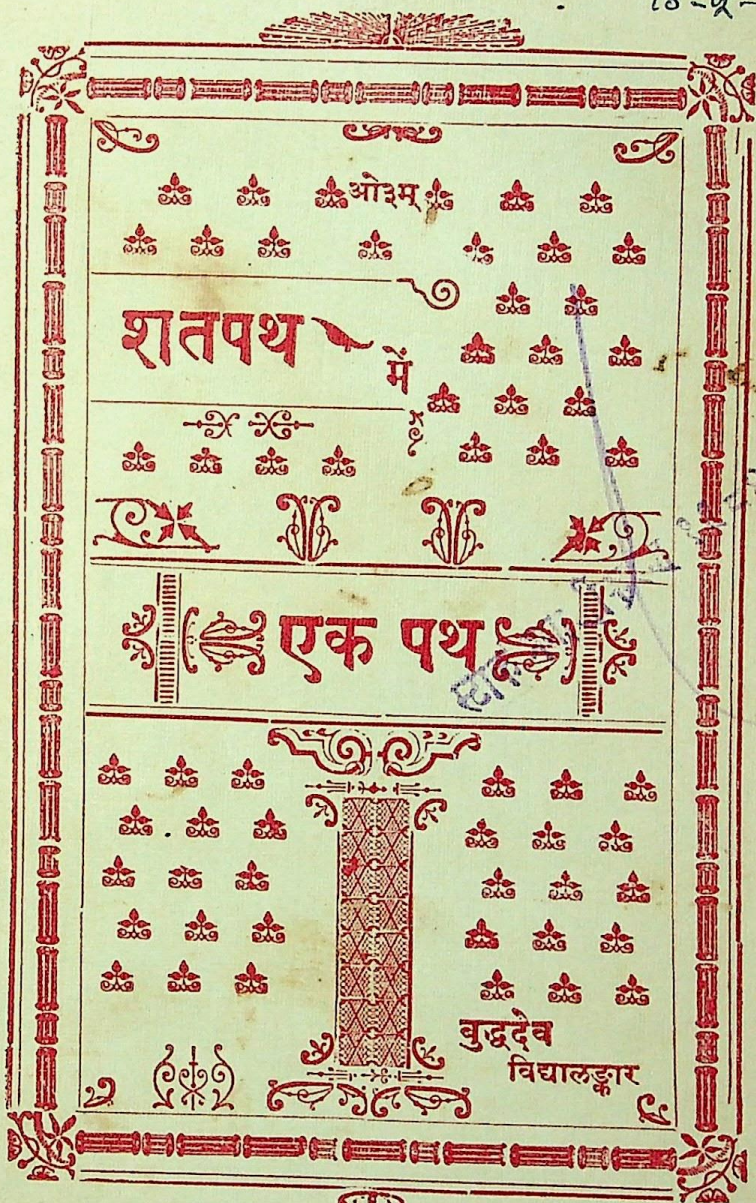 ओ३म्
शतपथ
में
एक पथ
वुद्धदेव
विद्यालङ्कार